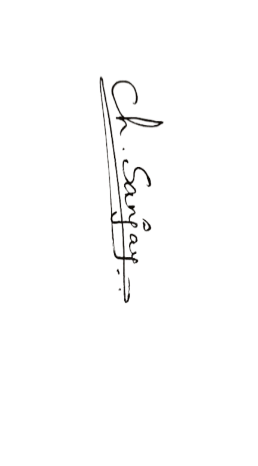 Ch. Sanjay